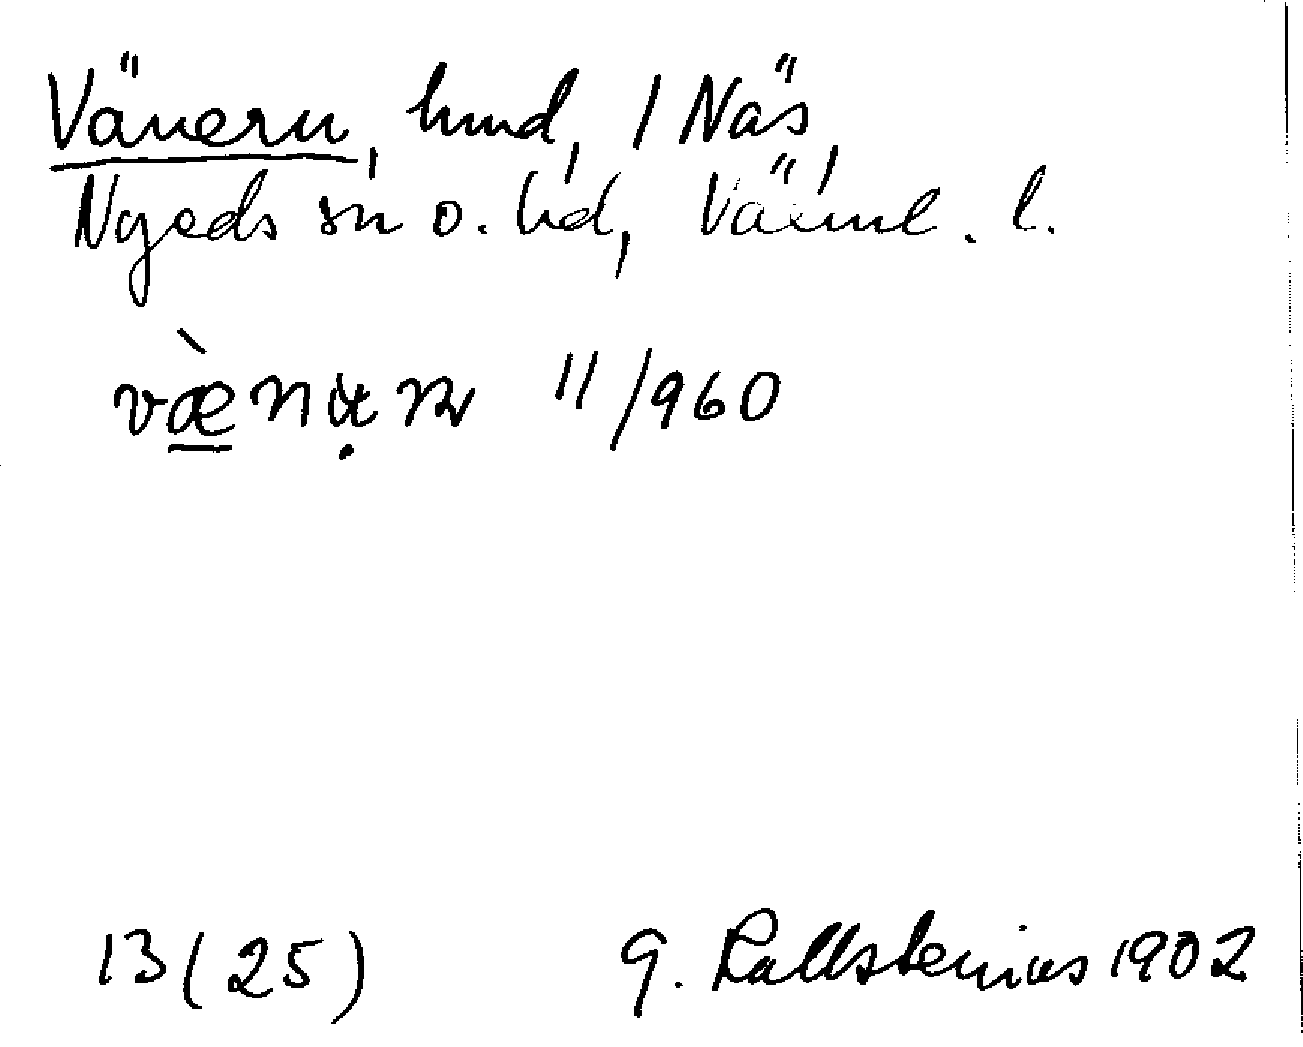 Vänern, hund, / Näs,
Nyeds sn o. hd, Värml. l.
11/960
13 (25) G. Kallstenius 1902